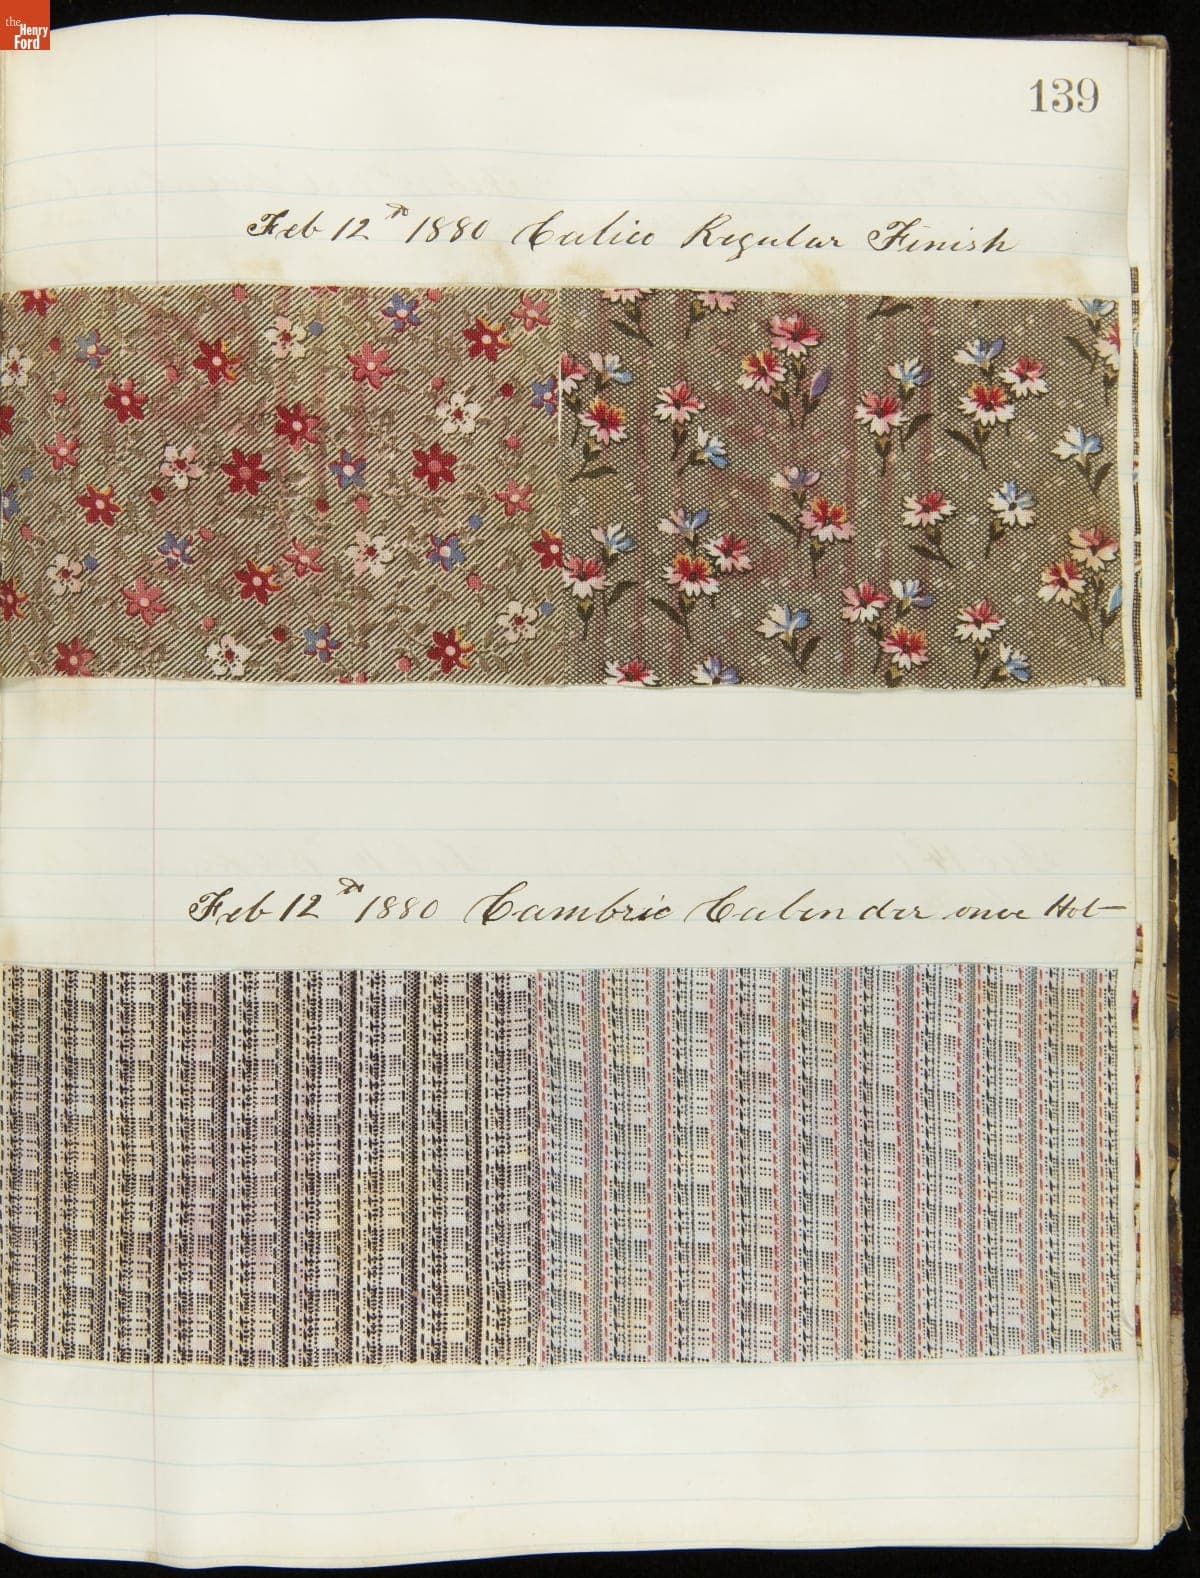 the
Henry
Ford
139
Feb 12th 1880 Calico Regular Finish
Feb 12th 1880 Cambric Calender once Hot